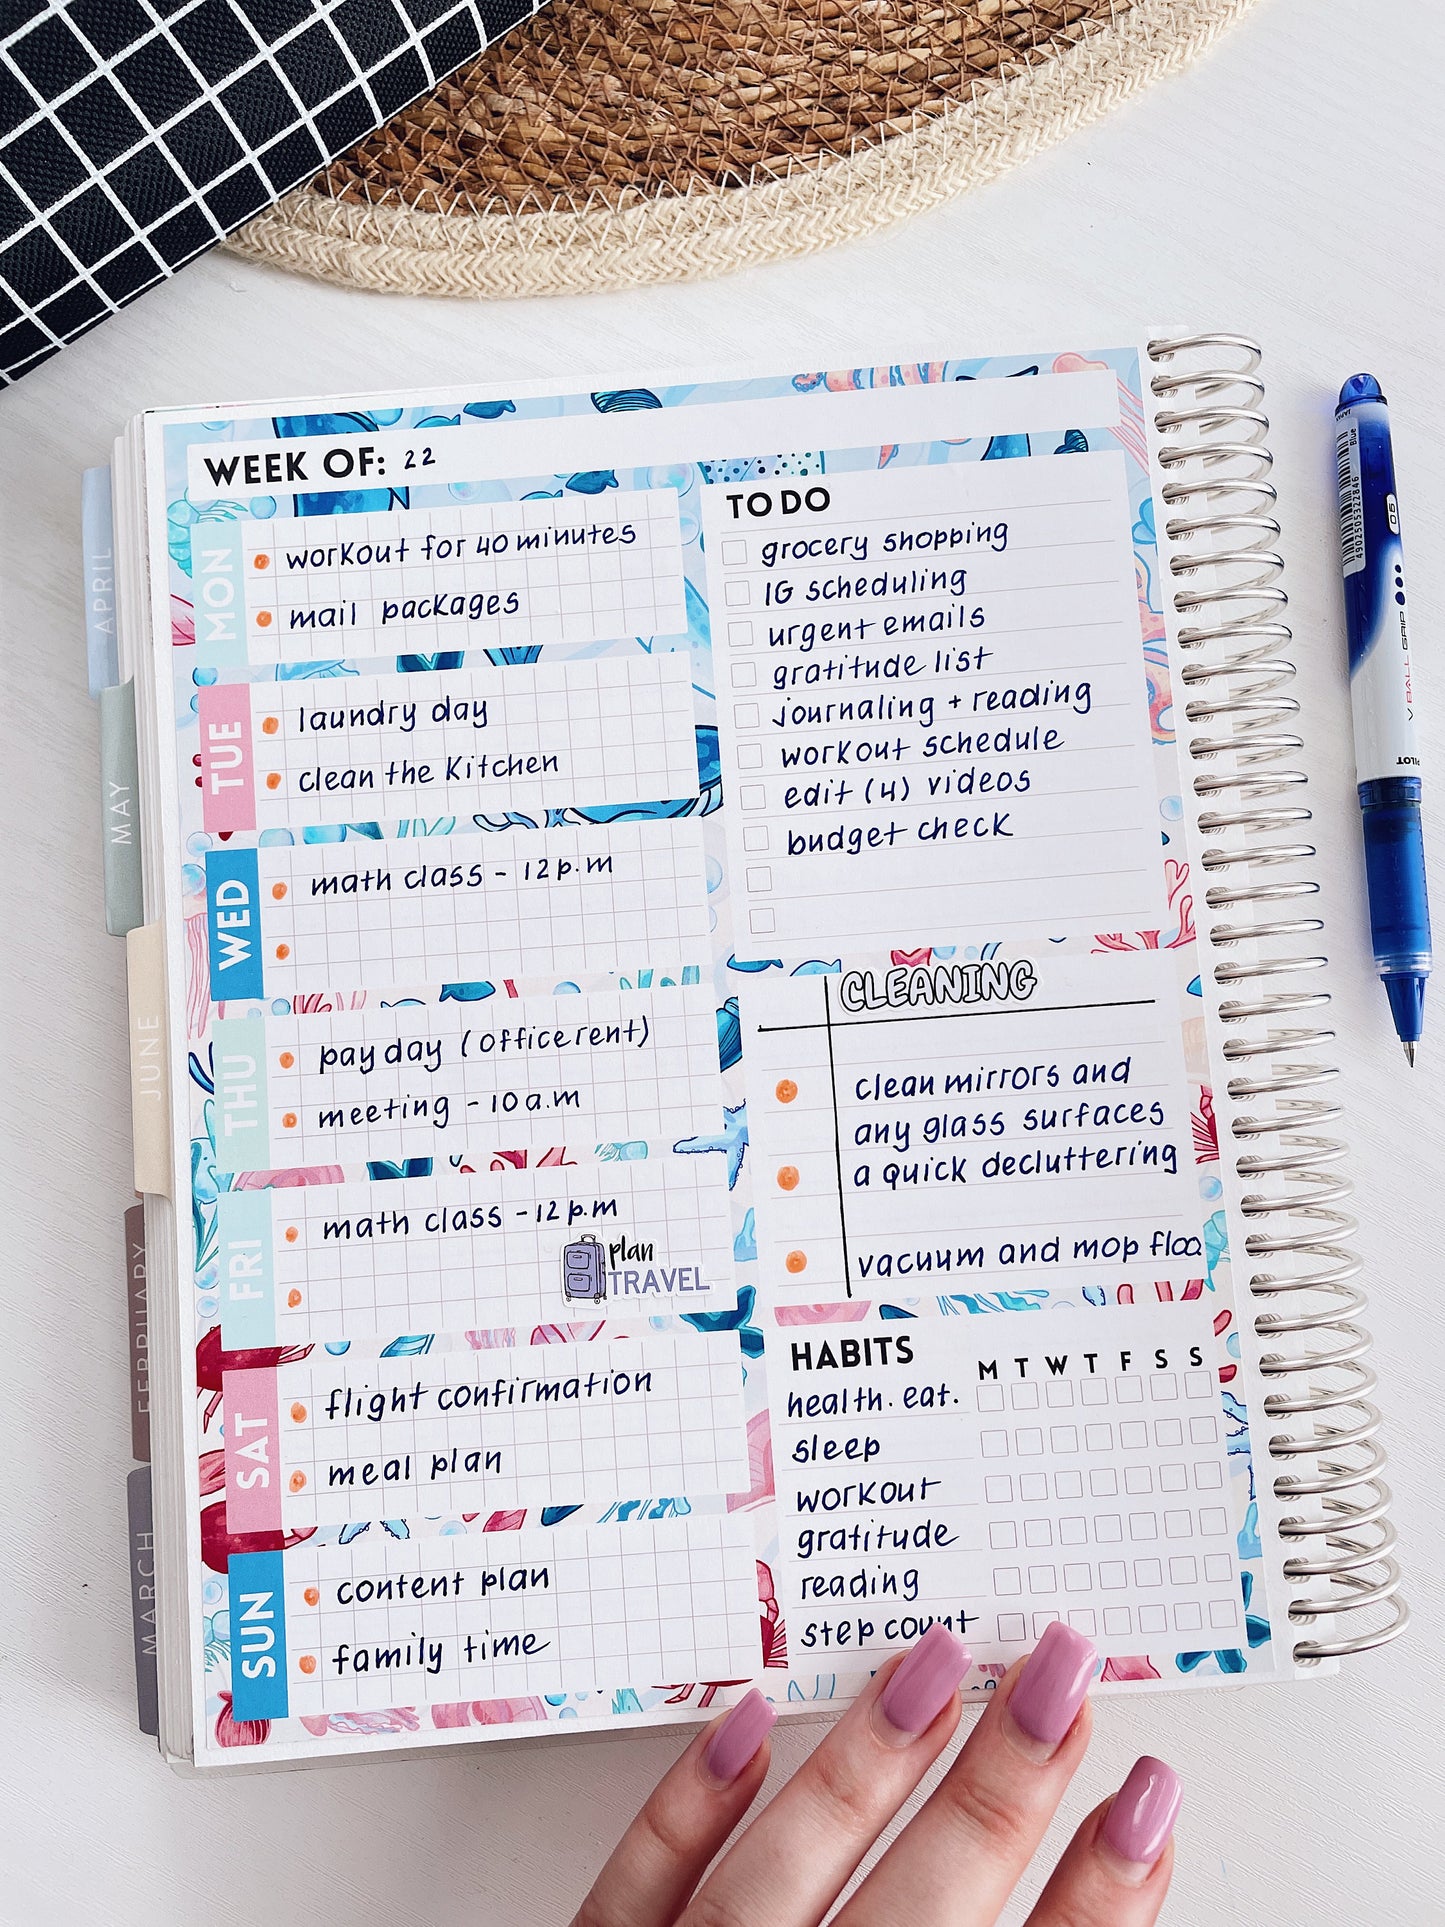 WEEK OF: 22
MON
workout for 40 minutes
mail packages
TUE
laundry day
clean the kitchen
WED
math class - 12 p.m
THU
pay day (office rent)
meeting - 10 a.m
FRI
math class - 12 p.m
plan
TRAVEL
SAT
flight confirmation
meal plan
SUN
content plan
family time
TO DO
grocery shopping
IG scheduling
urgent emails
gratitude list
journaling + reading
workout schedule
edit (4) videos
budget check
CLEANING
clean mirrors and
any glass surfaces
a quick decluttering
vacuum and mop floo
HABITS
M T W T F S S
health. eat.
sleep
workout
gratitude
reading
step count
APRIL
MAY
JUNE
FEBRUARY
MARCH
JAPAN
Blue
4902505322846
05
V BALL GRIP
PILOT